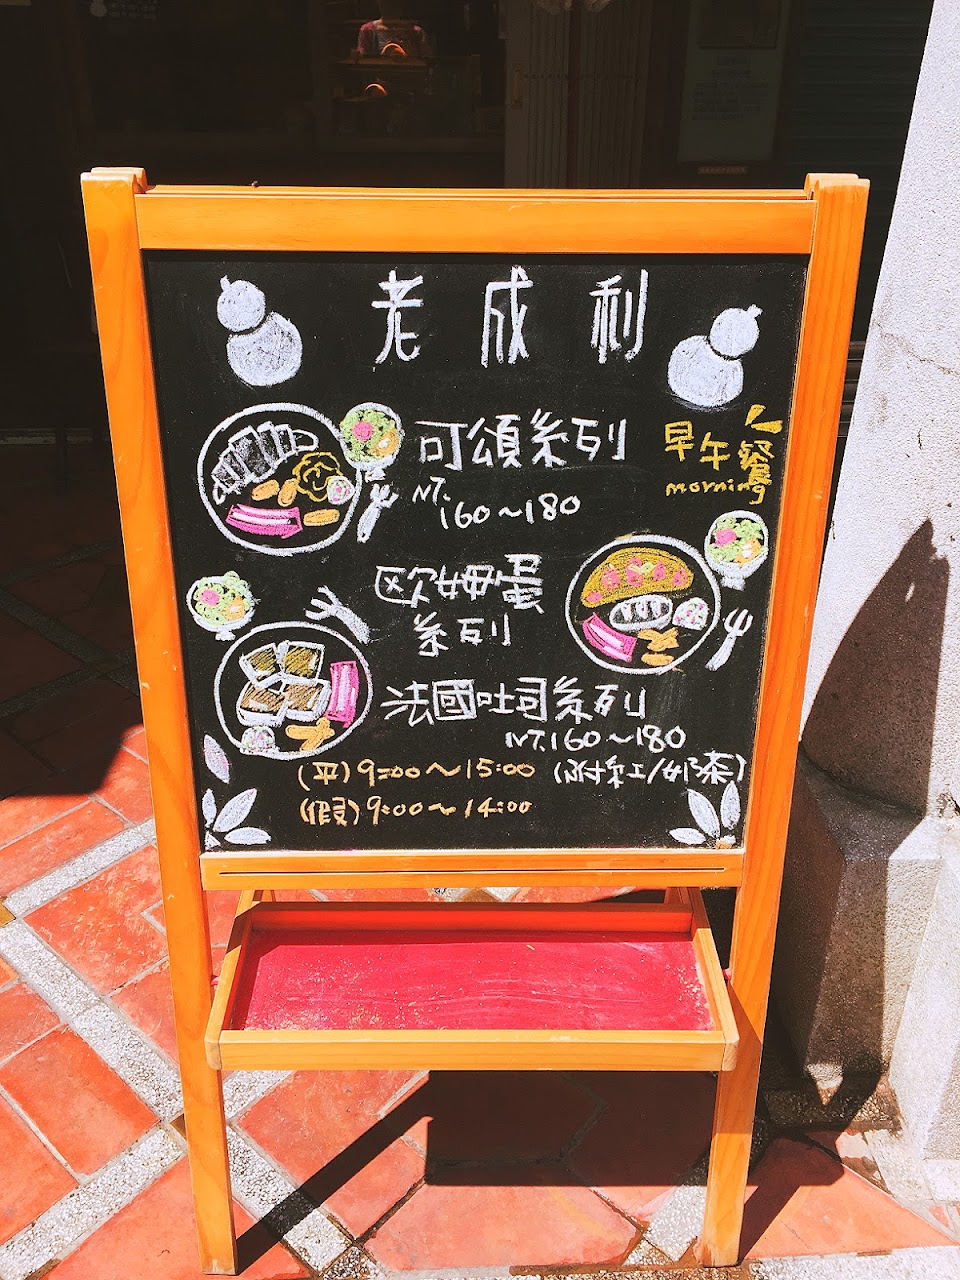 老成利
可頌系列
NT.
160～180
早午餐
morning
歐姆蛋
系列
法國吐司系列
NT.160～180
(平) 9:00～15:00 (附紅/奶茶)
(假) 9:00～14:00